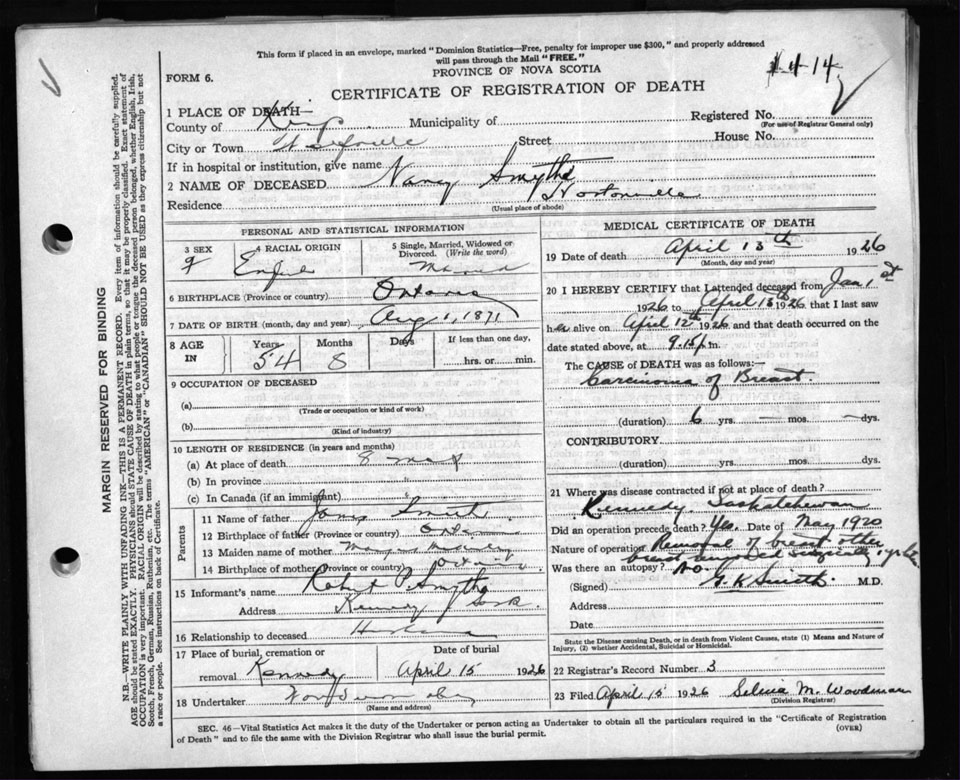 This form if placed in an envelope, marked "Dominion Statistics—Free, penalty for improper use $300," and properly addressed
will pass through the Mail "FREE."
PROVINCE OF NOVA SCOTIA
1414
FORM 6.
CERTIFICATE OF REGISTRATION OF DEATH
1 PLACE OF DEATH—
Registered No.
(For use of Registrar General only)
County of Kings Municipality of
City or Town Street House No.
If in hospital or institution, give name
2 NAME OF DECEASED Nancy Smythe
Residence
(Usual place of abode)
PERSONAL AND STATISTICAL INFORMATION
3 SEX 4 RACIAL ORIGIN 5 Single, Married, Widowed or
Divorced. (Write the word)
Married
6 BIRTHPLACE (Province or country) Ontario
7 DATE OF BIRTH (month, day and year) Aug 1, 1871
8 AGE IN Years Months Days If less than one day,
54 8 hrs. or min.
9 OCCUPATION OF DECEASED
(a)
(Trade or occupation or kind of work)
(b)
(Kind of industry)
10 LENGTH OF RESIDENCE (in years and months)
(a) At place of death 8
(b) In province "
(c) In Canada (if an immigrant)
Parents
11 Name of father James Smith
12 Birthplace of father (Province or country) Ontario
13 Maiden name of mother
14 Birthplace of mother (Province or country) Ontario
15 Informant's name Robert P. Smythe
Address Kennedy Sask.
16 Relationship to deceased Husband
17 Place of burial, cremation or Date of burial
removal Kennedy April 15 1926
18 Undertaker
(Name and address)
MEDICAL CERTIFICATE OF DEATH
19 Date of death April 13th 1926
(Month, day and year)
20 I HEREBY CERTIFY that I attended deceased from Jan 1st
1926 to April 13th 1926, that I last saw
her alive on April 12th 1926 and that death occurred on the
date stated above, at 9.15 p m.
The CAUSE of DEATH was as follows:—
Carcinoma of Breast.
(duration) 6 yrs. — mos. — dys.
CONTRIBUTORY
(duration) yrs. mos. dys.
21 Where was disease contracted if not at place of death?
Kennedy, Saskatchewan
Did an operation precede death? Yes. Date of May 1920
Nature of operation Removal of breast other
breast removed surgically
Was there an autopsy? No.
(Signed) G. K. Smith M.D.
Address
Date
State the Disease causing Death, or in death from Violent Causes, state (1) Means and Nature of
Injury, (2) whether Accidental, Suicidal or Homicidal.
22 Registrar's Record Number 3
23 Filed April 15 1926 Selina M. Woodman
(Division Registrar)
SEC. 46—Vital Statistics Act makes it the duty of the Undertaker or person acting as Undertaker to obtain all the particulars required in the "Certificate of Registration
of Death" and to file the same with the Division Registrar who shall issue the burial permit.
(OVER)
MARGIN RESERVED FOR BINDING
N.B.—WRITE PLAINLY WITH UNFADING INK—THIS IS A PERMANENT RECORD. Every item of information should be carefully supplied.
AGE should be stated EXACTLY. PHYSICIANS should STATE CAUSE OF DEATH in plain terms, so that it may be properly classified. Exact statement of
OCCUPATION is very important. RACIAL ORIGIN will be described by stating to what people or tongue the deceased person belonged, whether English, Irish,
Scotch, French, German, Russian, Ruthenian, etc. The terms "AMERICAN" or "CANADIAN" SHOULD NOT BE USED as they express citizenship but not
a race or people. See instructions on back of Certificate.